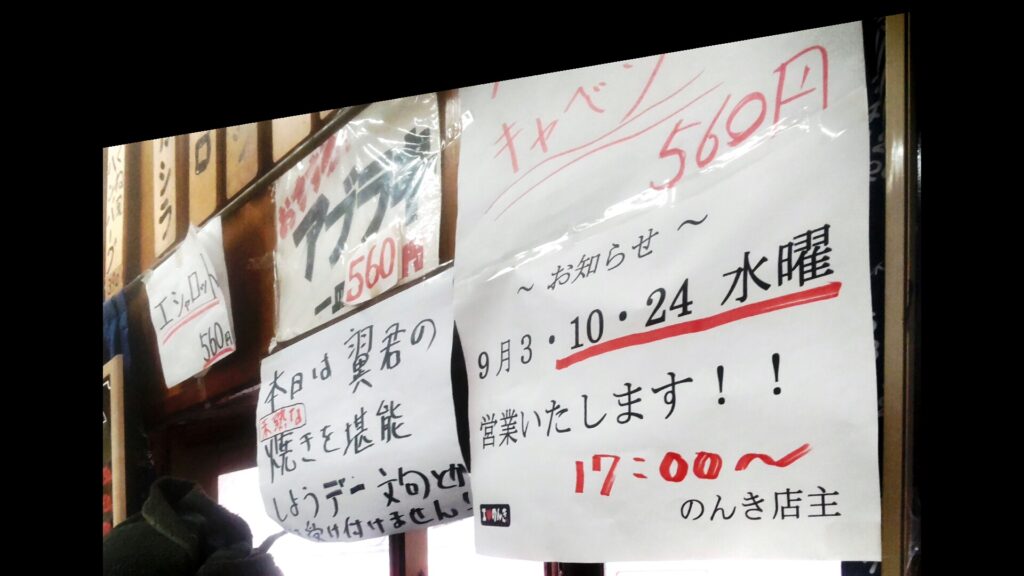 エシャロット
560円
アブラ
560円
本日は翼君の
未熟な
焼きを堪能
しようデー 文句とか
受け付けません!
キャベツ
560円
~ お知らせ ~
9月3・10・24 水曜
営業いたします!!
17:00~
のんき店主
のんき